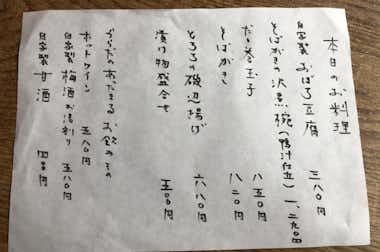 本日のお料理
自家製 おぼろ豆腐 三八〇円
そばがきの沢煮椀(鴨汁仕立) 一、二九〇円
だし巻玉子 八五〇円
そばがき 八二〇円
とろろの磯辺揚げ 六八〇円
漬け物盛合せ 五〇〇円
からだのあたたまるお飲みもの
ホットワイン 五八〇円
自家製 梅酒お湯割り 五八〇円
自家製 甘酒